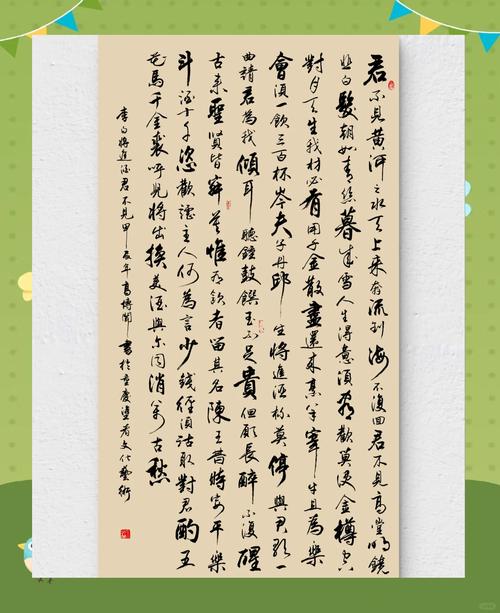 君不見黄河之水天上来奔流到海不復回君不見高堂明鏡
悲白髮朝如青絲暮成雪人生得意須盡歡莫使金樽空
對月天生我材必有用千金散盡還復来烹羊宰牛且為樂
會須一飲三百杯岑夫子丹邱生將進酒杯莫停與君歌一
曲請君為我傾耳聽鐘鼓饌玉不足貴但願長醉不復醒
古来聖賢皆寂寞惟有飲者留其名陳王昔時宴平樂
斗酒十千恣歡謔主人何為言少錢徑須沽取對君酌五
花馬千金裘呼兒將出換美酒與尔同消万古愁
李白將進酒君不見甲辰年高博聞書於重慶文化藝術